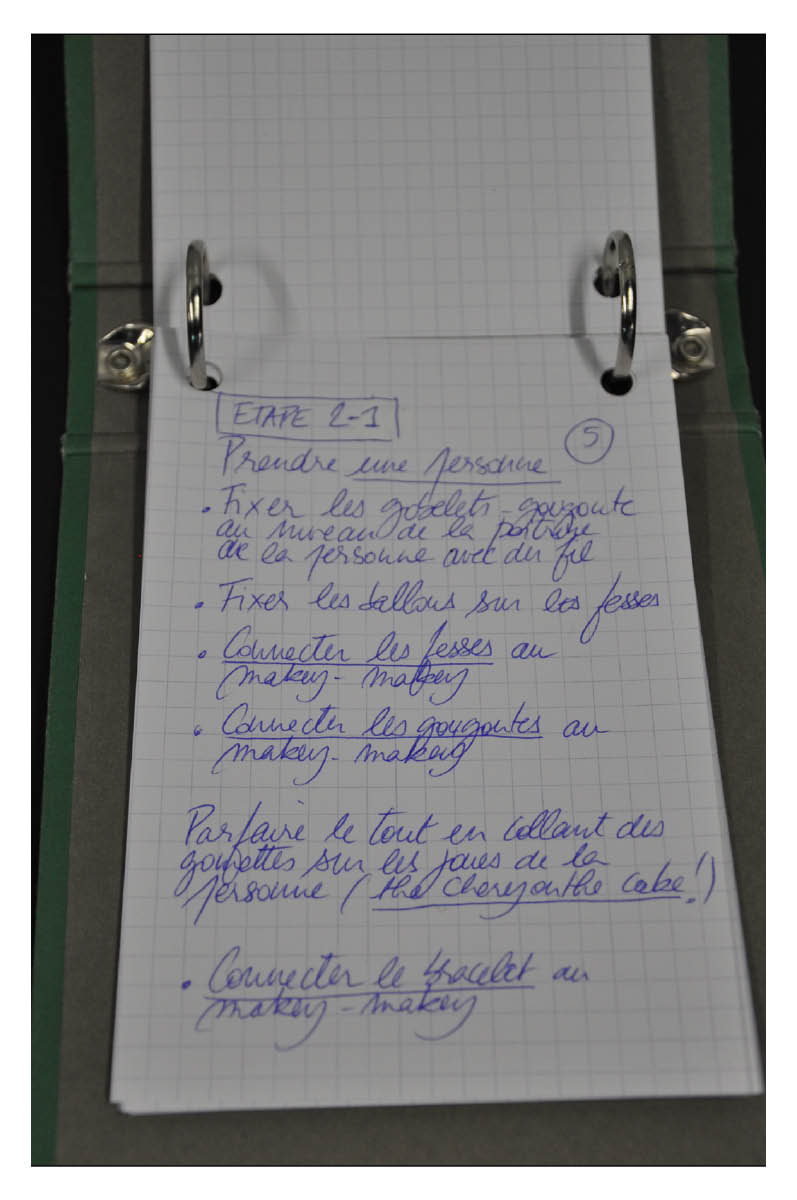 ETAPE 2-1
5
Prendre une personne
• Fixer les gobelets-gougoute
au niveau de la poitrine
de la personne avec du fil
• Fixer les ballons sur les fesses
• Connecter les fesses au
makey-makey
• Connecter les gougoutes au
makey-makey
Parfaire le tout en collant des
gomettes sur les joues de la
personne (the cherry on the cake!)
• Connecter le bracelet au
makey-makey